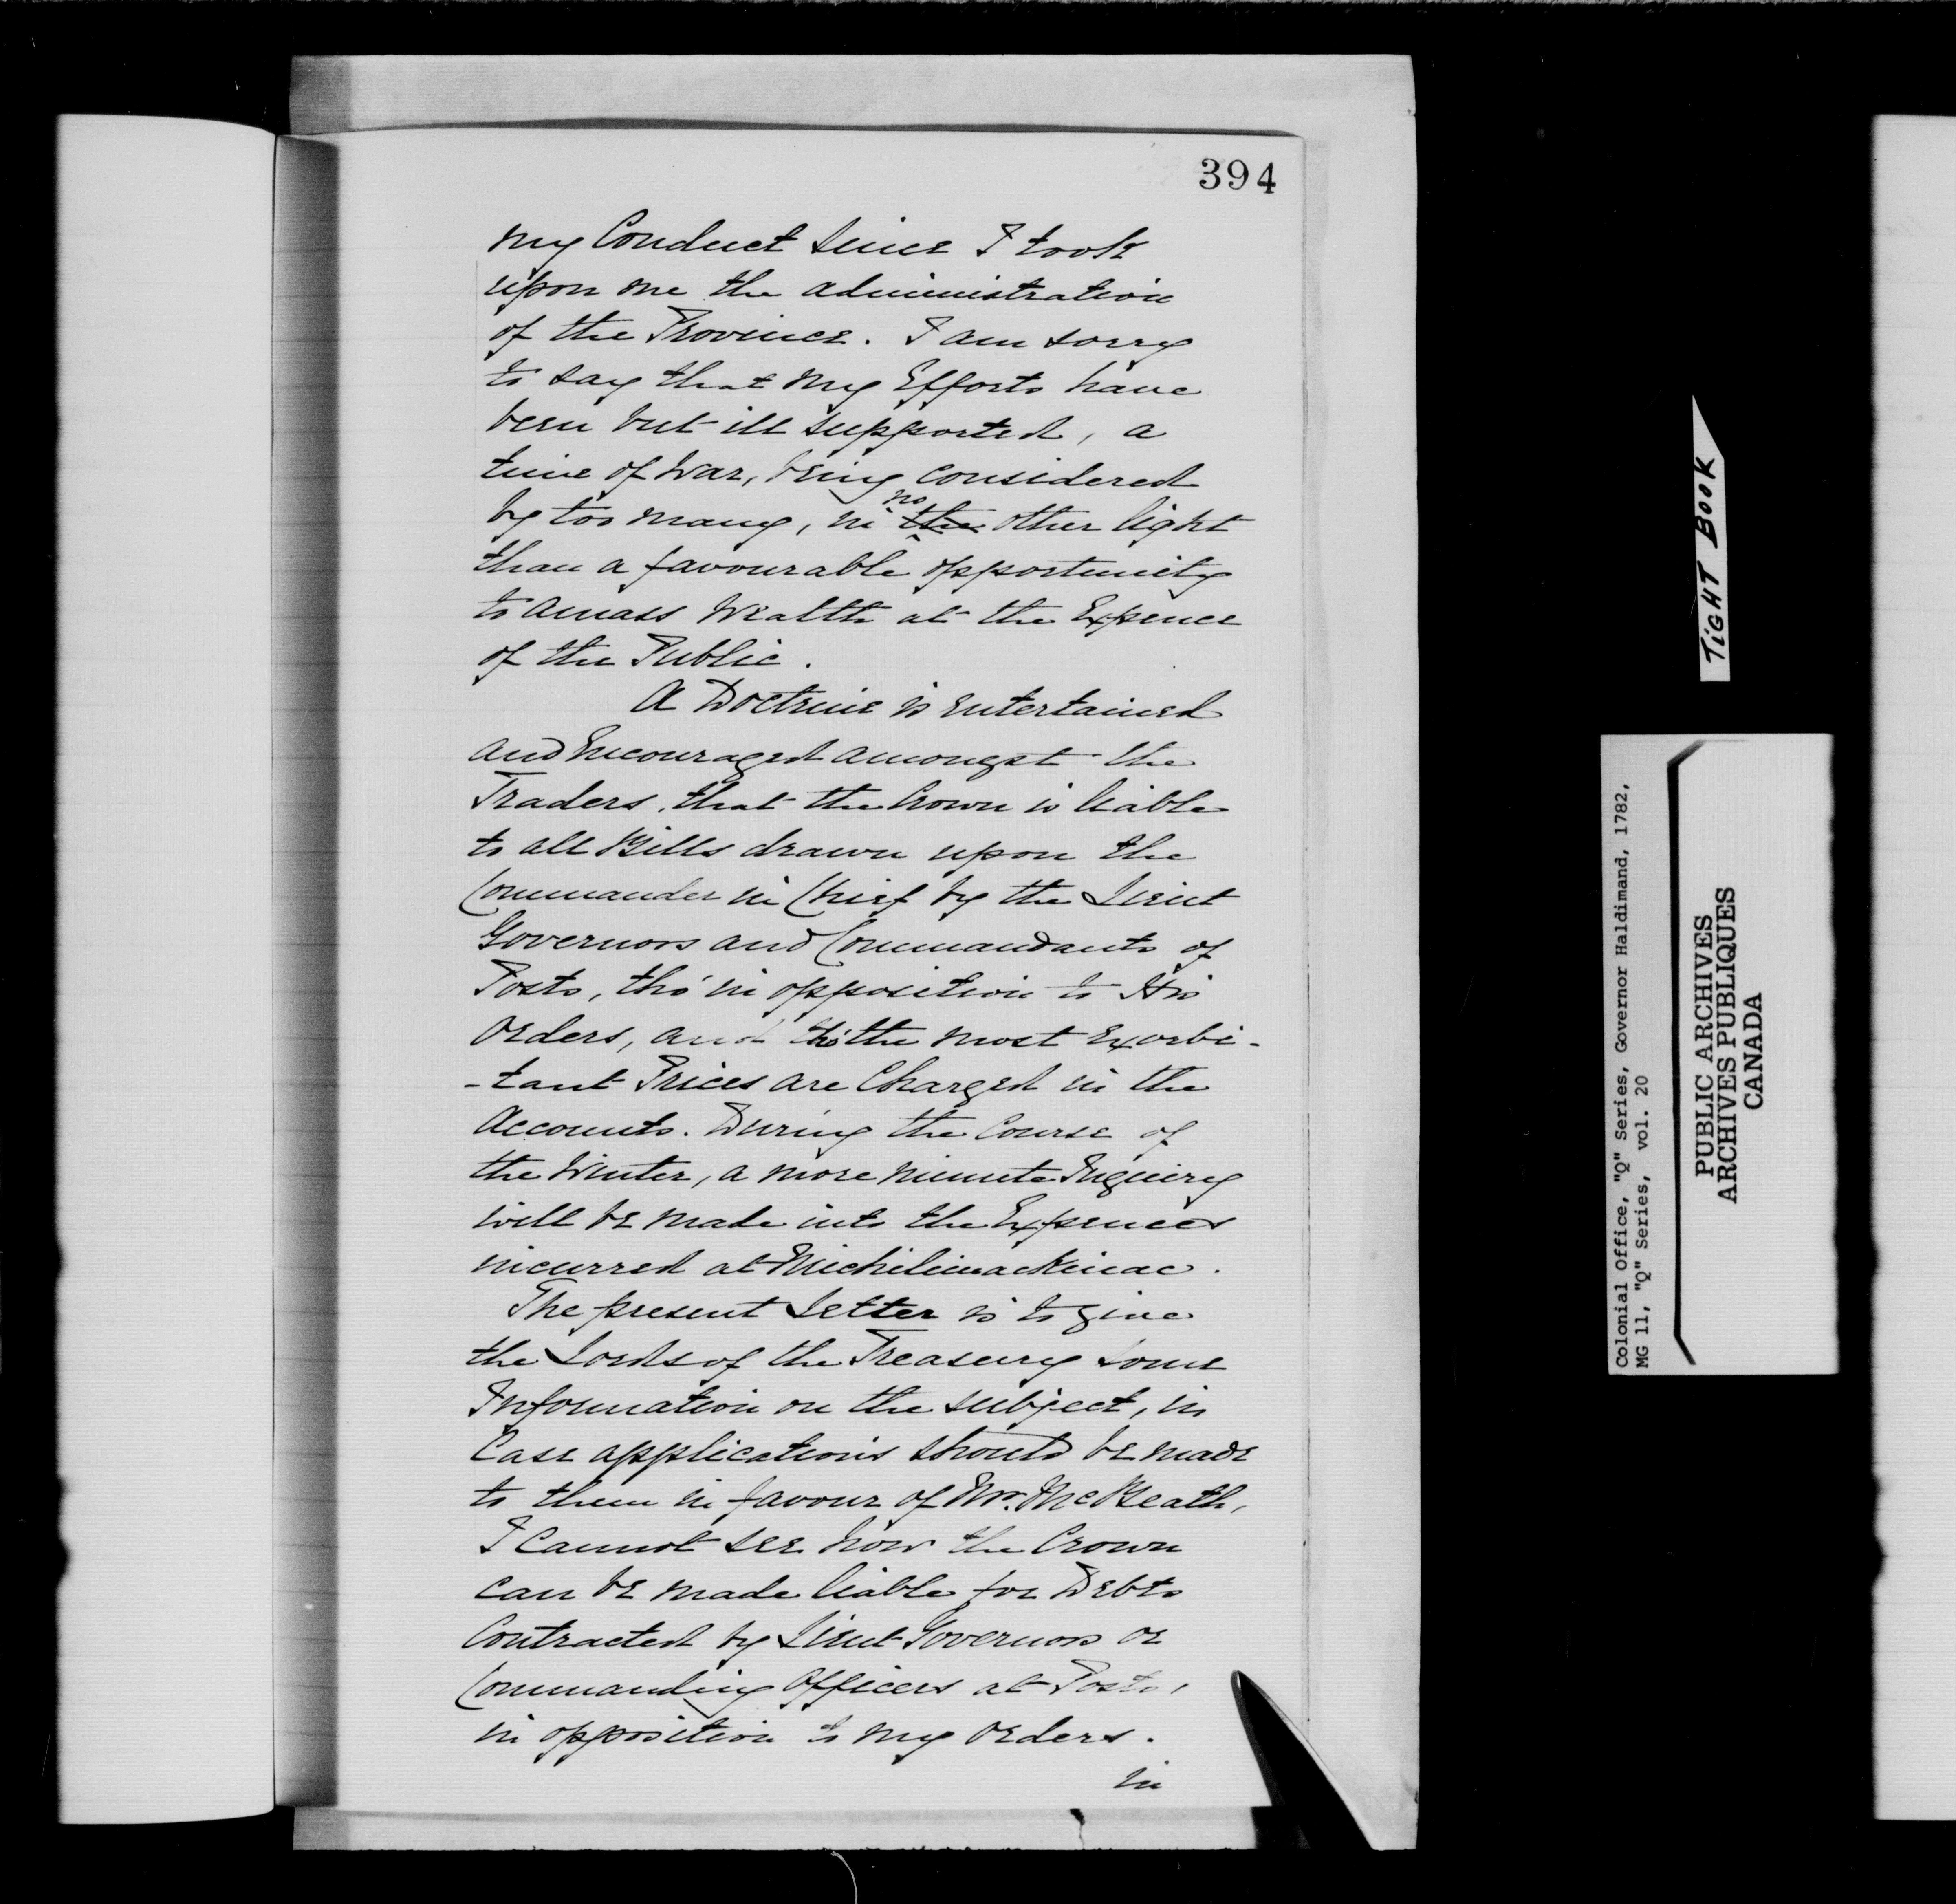 394
my Conduct since I took
upon me the administration
of the Province. I am sorry
to say that my Efforts have
been but ill supported, a
time of War, being considered
by too many, in no the other light
than a favourable opportunity
to amass Wealth at the Expence
of the Public.
A Doctrine is entertained
and Encouraged amongst the
Traders, that the Crown is liable
to all Bills drawn upon the
Commander in Chief by the Lieut
Governors and Commandants of
Posts, tho' in opposition to His
Orders, and tho' the most Exorbi-
-tant Prices are Charged in the
Accounts. During the Course of
the Winter, a more minute Inquiry
will be made into the Expences
incurred at Michilimackinac.
The present Letter is to give
the Lords of the Treasury some
Information on the subject, in
Case applications should be made
to them in favour of Mr. McBeath,
I cannot see how the Crown
can be made liable for Debts
Contracted by Lieut Governors or
Commanding Officers at Posts,
in opposition to my orders.
In
TIGHT BOOK
Colonial Office, "Q" Series, Governor Haldimand, 1782,
MG 11, "Q" Series, vol. 20
PUBLIC ARCHIVES
ARCHIVES PUBLIQUES
CANADA